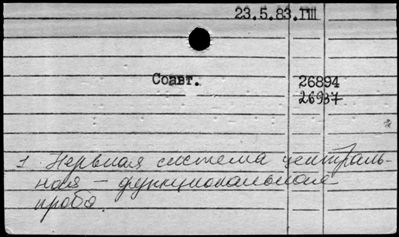 23.5.83.ПШ
Соавт. 26894
26937
1. Нервная система централь-
ная — функциональная
проба.